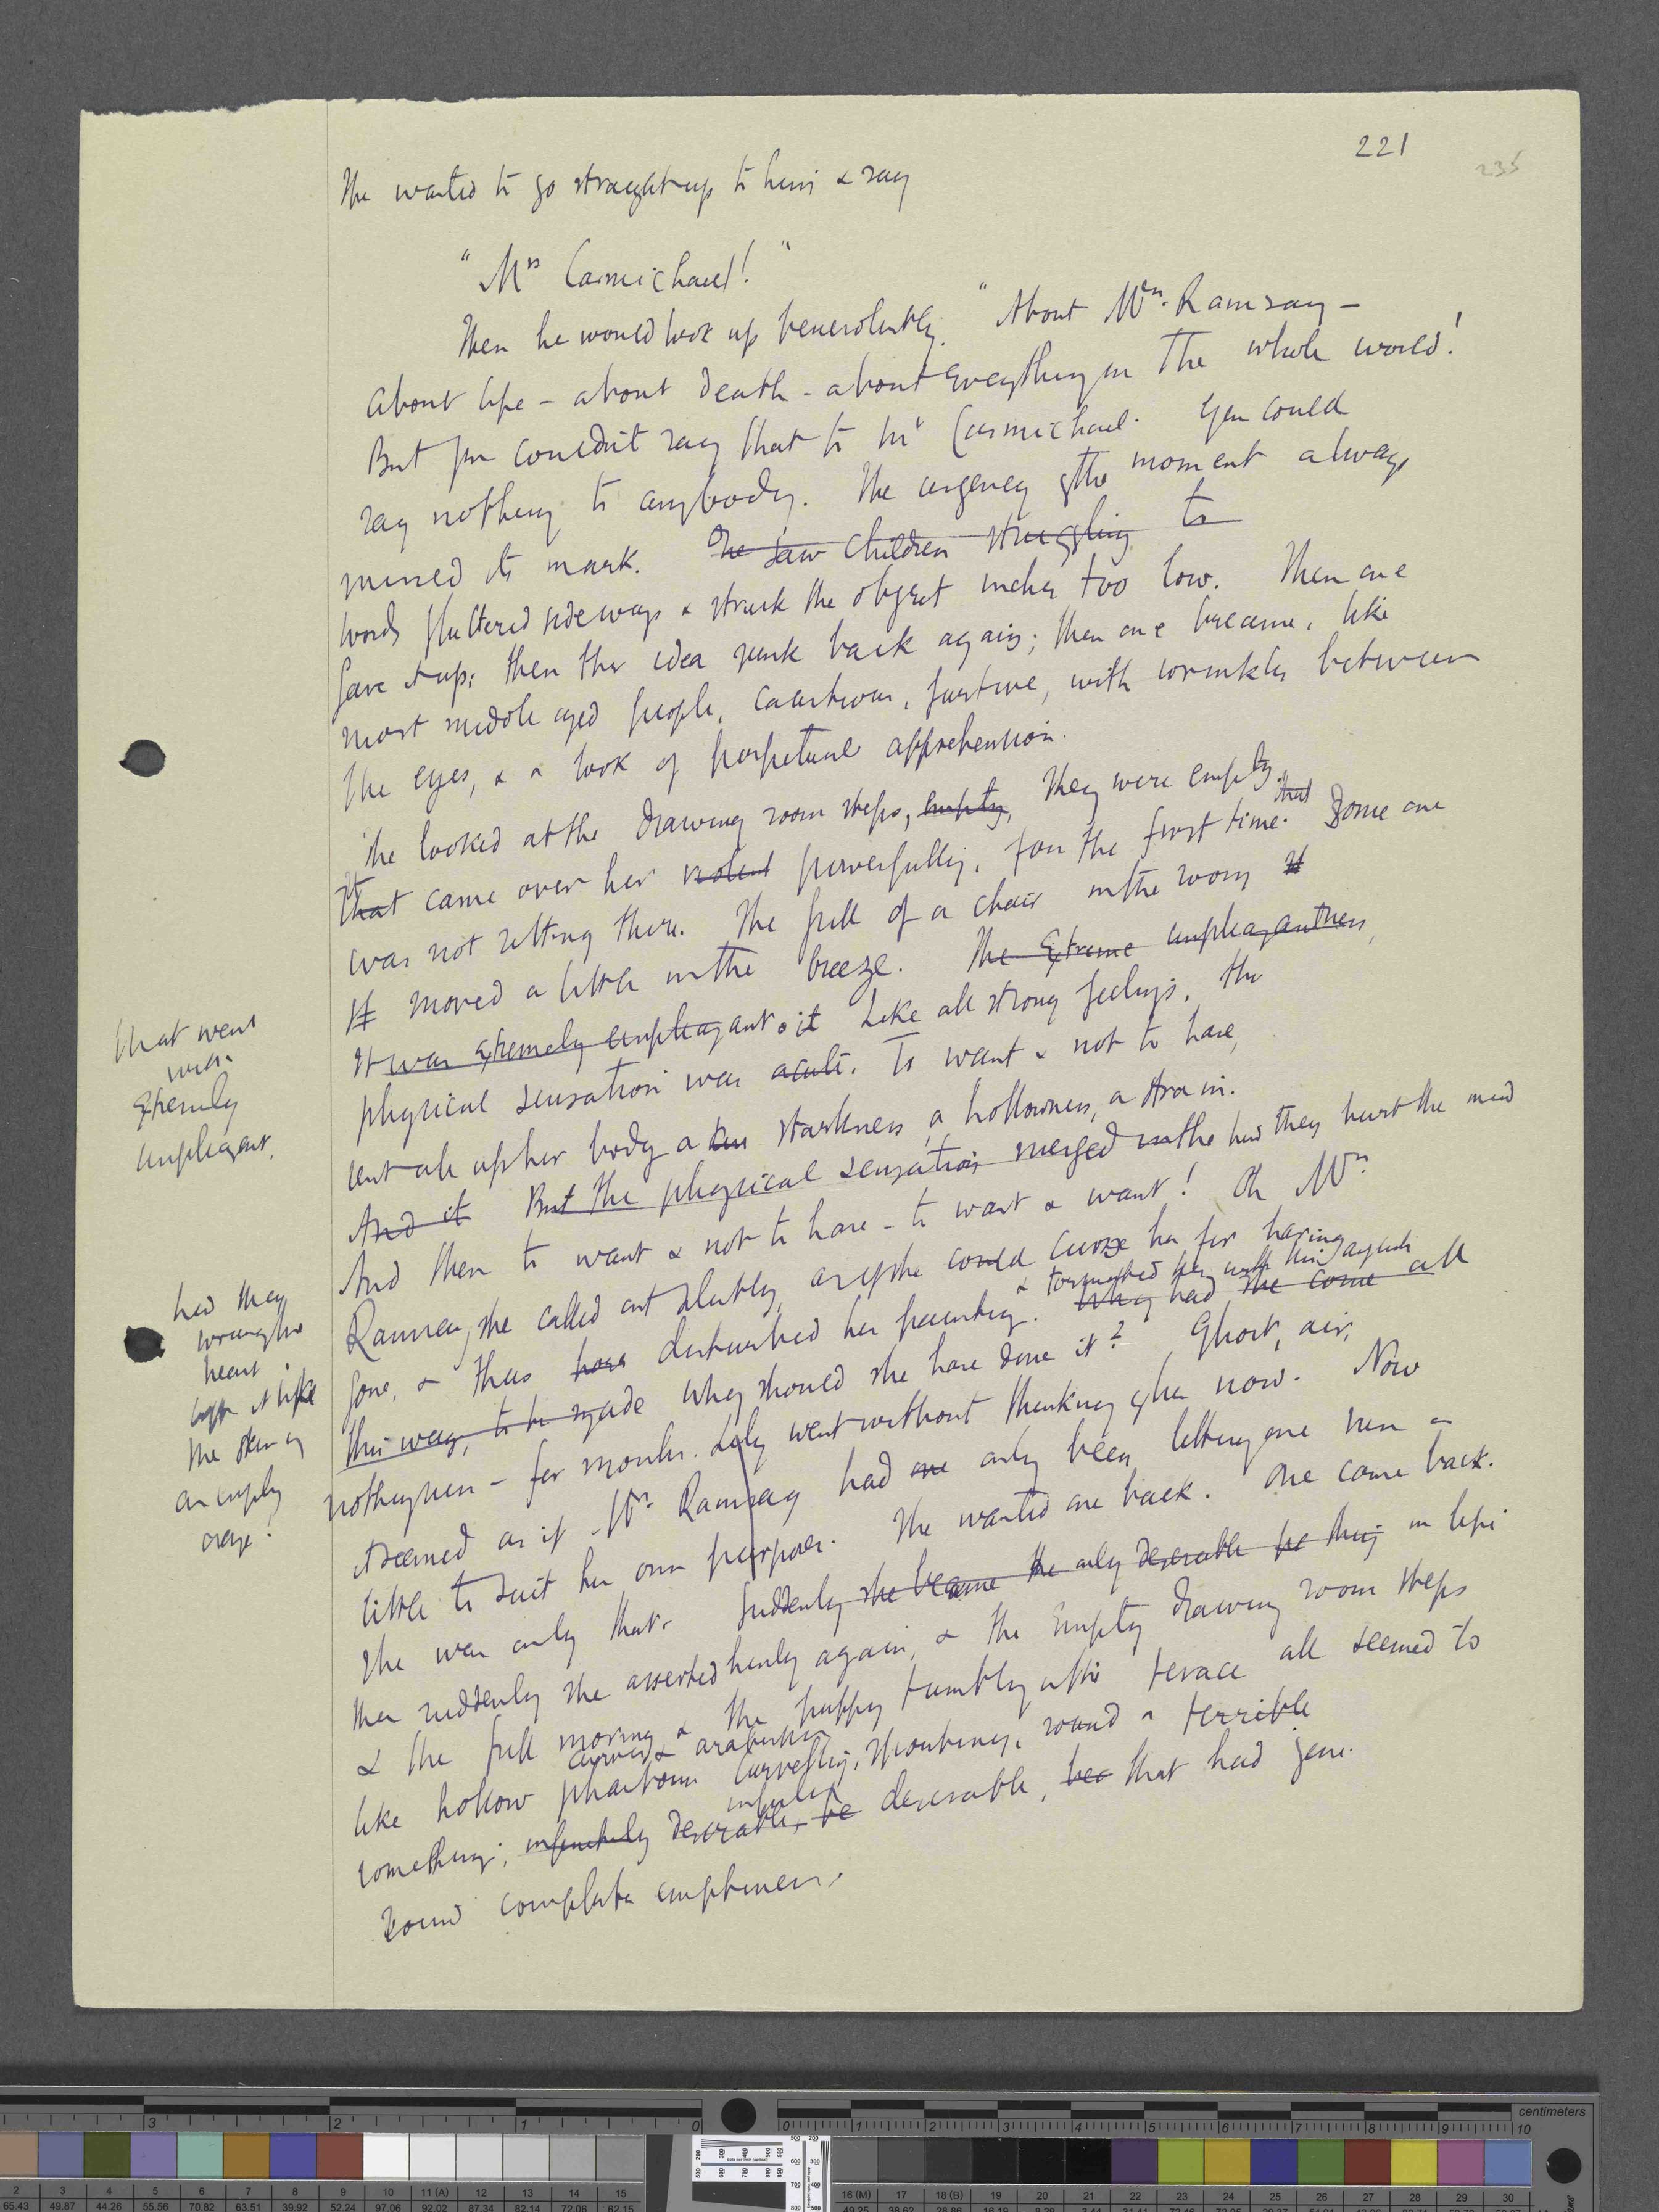 221
235
She wanted to go straight up to him & say
"Mrs Carmichael!"
Then he would look up benevolently. "About Mrs. Ramsay –
about life – about death – about everything in the whole world!
But you couldn't say that to Mr Carmichael. You could
say nothing to anybody. The urgency of the moment always
missed its mark. She saw children struggling to
words fluttered sideways & struck the object inches too low. Then one
gave it up; then the idea sunk back again; then one became, like
most middle aged people, cautious, furtive, with wrinkles between
the eyes, & a look of perpetual apprehension.
She looked at the drawing room steps, empty, they were empty.
It that came over her violent powerfully, for the first time. that Some one
was not sitting there. The frill of a chair in the room it
It moved a little in the breeze. The extreme unpleasantness,
that went
was
extremely
unpleasant.
It was extremely unpleasant. it Like all strong feelings, the
physical sensation was acute. To want & not to have,
sent all up her body a starkness, a hollowness, a strain.
And it But the physical sensation merged in the how they hurt the mind
And then to want & not to have – to want & want! Oh Mrs.
how they
wrung the
heart
left it like
the skin of
an empty
orange!
Ramsay, she called out silently, as if she could curse her for having
gone, & thus have disturbed her painting. & tormented her with this anguish Why had she come all
this way, to be made Why should she have done it? Ghost, air,
nothingness – for months. Lily went without thinking of her now. Now
it seemed as if Mrs. Ramsay had one only been letting one run a
little to suit her own purposes. She wanted one back. One came back.
She was only that. Suddenly she became the only desirable thing in life
then suddenly she asserted herself again, & the empty drawing room steps
& the frill moving & the puppy tumbling on the terrace all seemed to
like hollow phantoms curves & arabesques curvetting, spouting, round a terrible
something; infinitely desirable, be infinitely desirable, that had gone.
round complete emptiness.